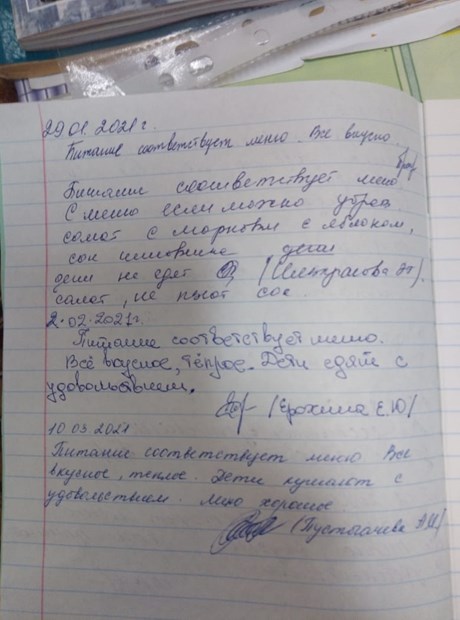 29.01.2021г.
Питание соответствует меню. Все вкусно.
Питание соответствует меню
С меню если можно убрать
салат с морковки с яблоком,
сок шиповника дети
дети не едят
салат, не пьют сок.
2.02.2021г.
Питание соответствует меню.
Всё вкусное, тёплое. Дети едят с
удовольствием.
(Ерохина Е.Ю)
10.03.2021
Питание соответствует меню Все
вкусное, теплое. Дети кушают с
удовольствием. Меню хорошое
(Пустогачева Э.И)